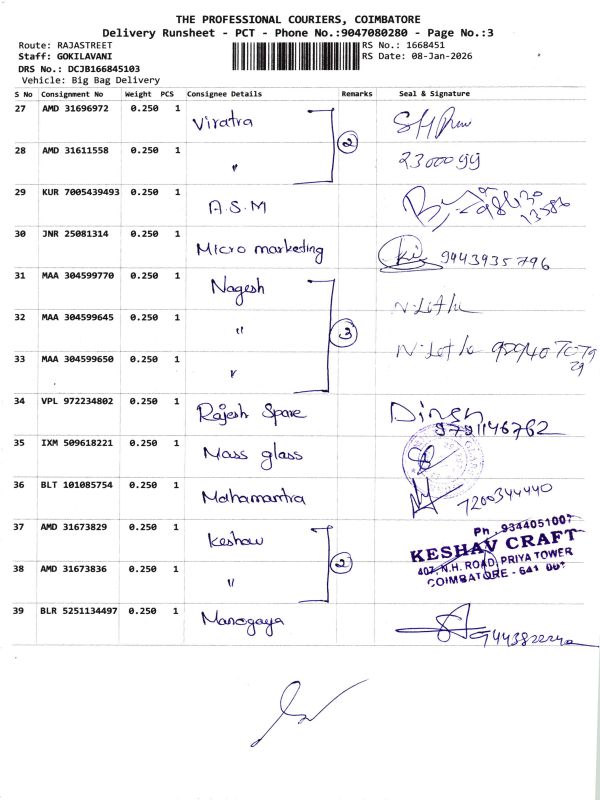 THE PROFESSIONAL COURIERS, COIMBATORE
Delivery Runsheet - PCT - Phone No.:9047080280 - Page No.:3
Route: RAJASTREET RS No.: 1668451
Staff: GOKILAVANI RS Date: 08-Jan-2026
DRS No.: DCJB166845103
Vehicle: Big Bag Delivery
S No Consignment No Weight PCS Consignee Details Remarks Seal & Signature
27 AMD 31696972 0.250 1 Viratra 2
28 AMD 31611558 0.250 1 " 2300099
29 KUR 7005439493 0.250 1 A.S.M
30 JNR 25081314 0.250 1 Micro markeding 9443935796
31 MAA 304599770 0.250 1 Nagesh 3
32 MAA 304599645 0.250 1 "
33 MAA 304599650 0.250 1 "
34 VPL 972234802 0.250 1 Rajesh Spare 9791146762
35 IXM 509618221 0.250 1 Mass glass
36 BLT 101085754 0.250 1 Mahamantra 7200344440
37 AMD 31673829 0.250 1 Keshav 2
Ph : 9344051007
KESHAV CRAFT
407, N.H. ROAD, PRIYA TOWER
COIMBATORE - 641 001
38 AMD 31673836 0.250 1 "
39 BLR 5251134497 0.250 1 Manogaya